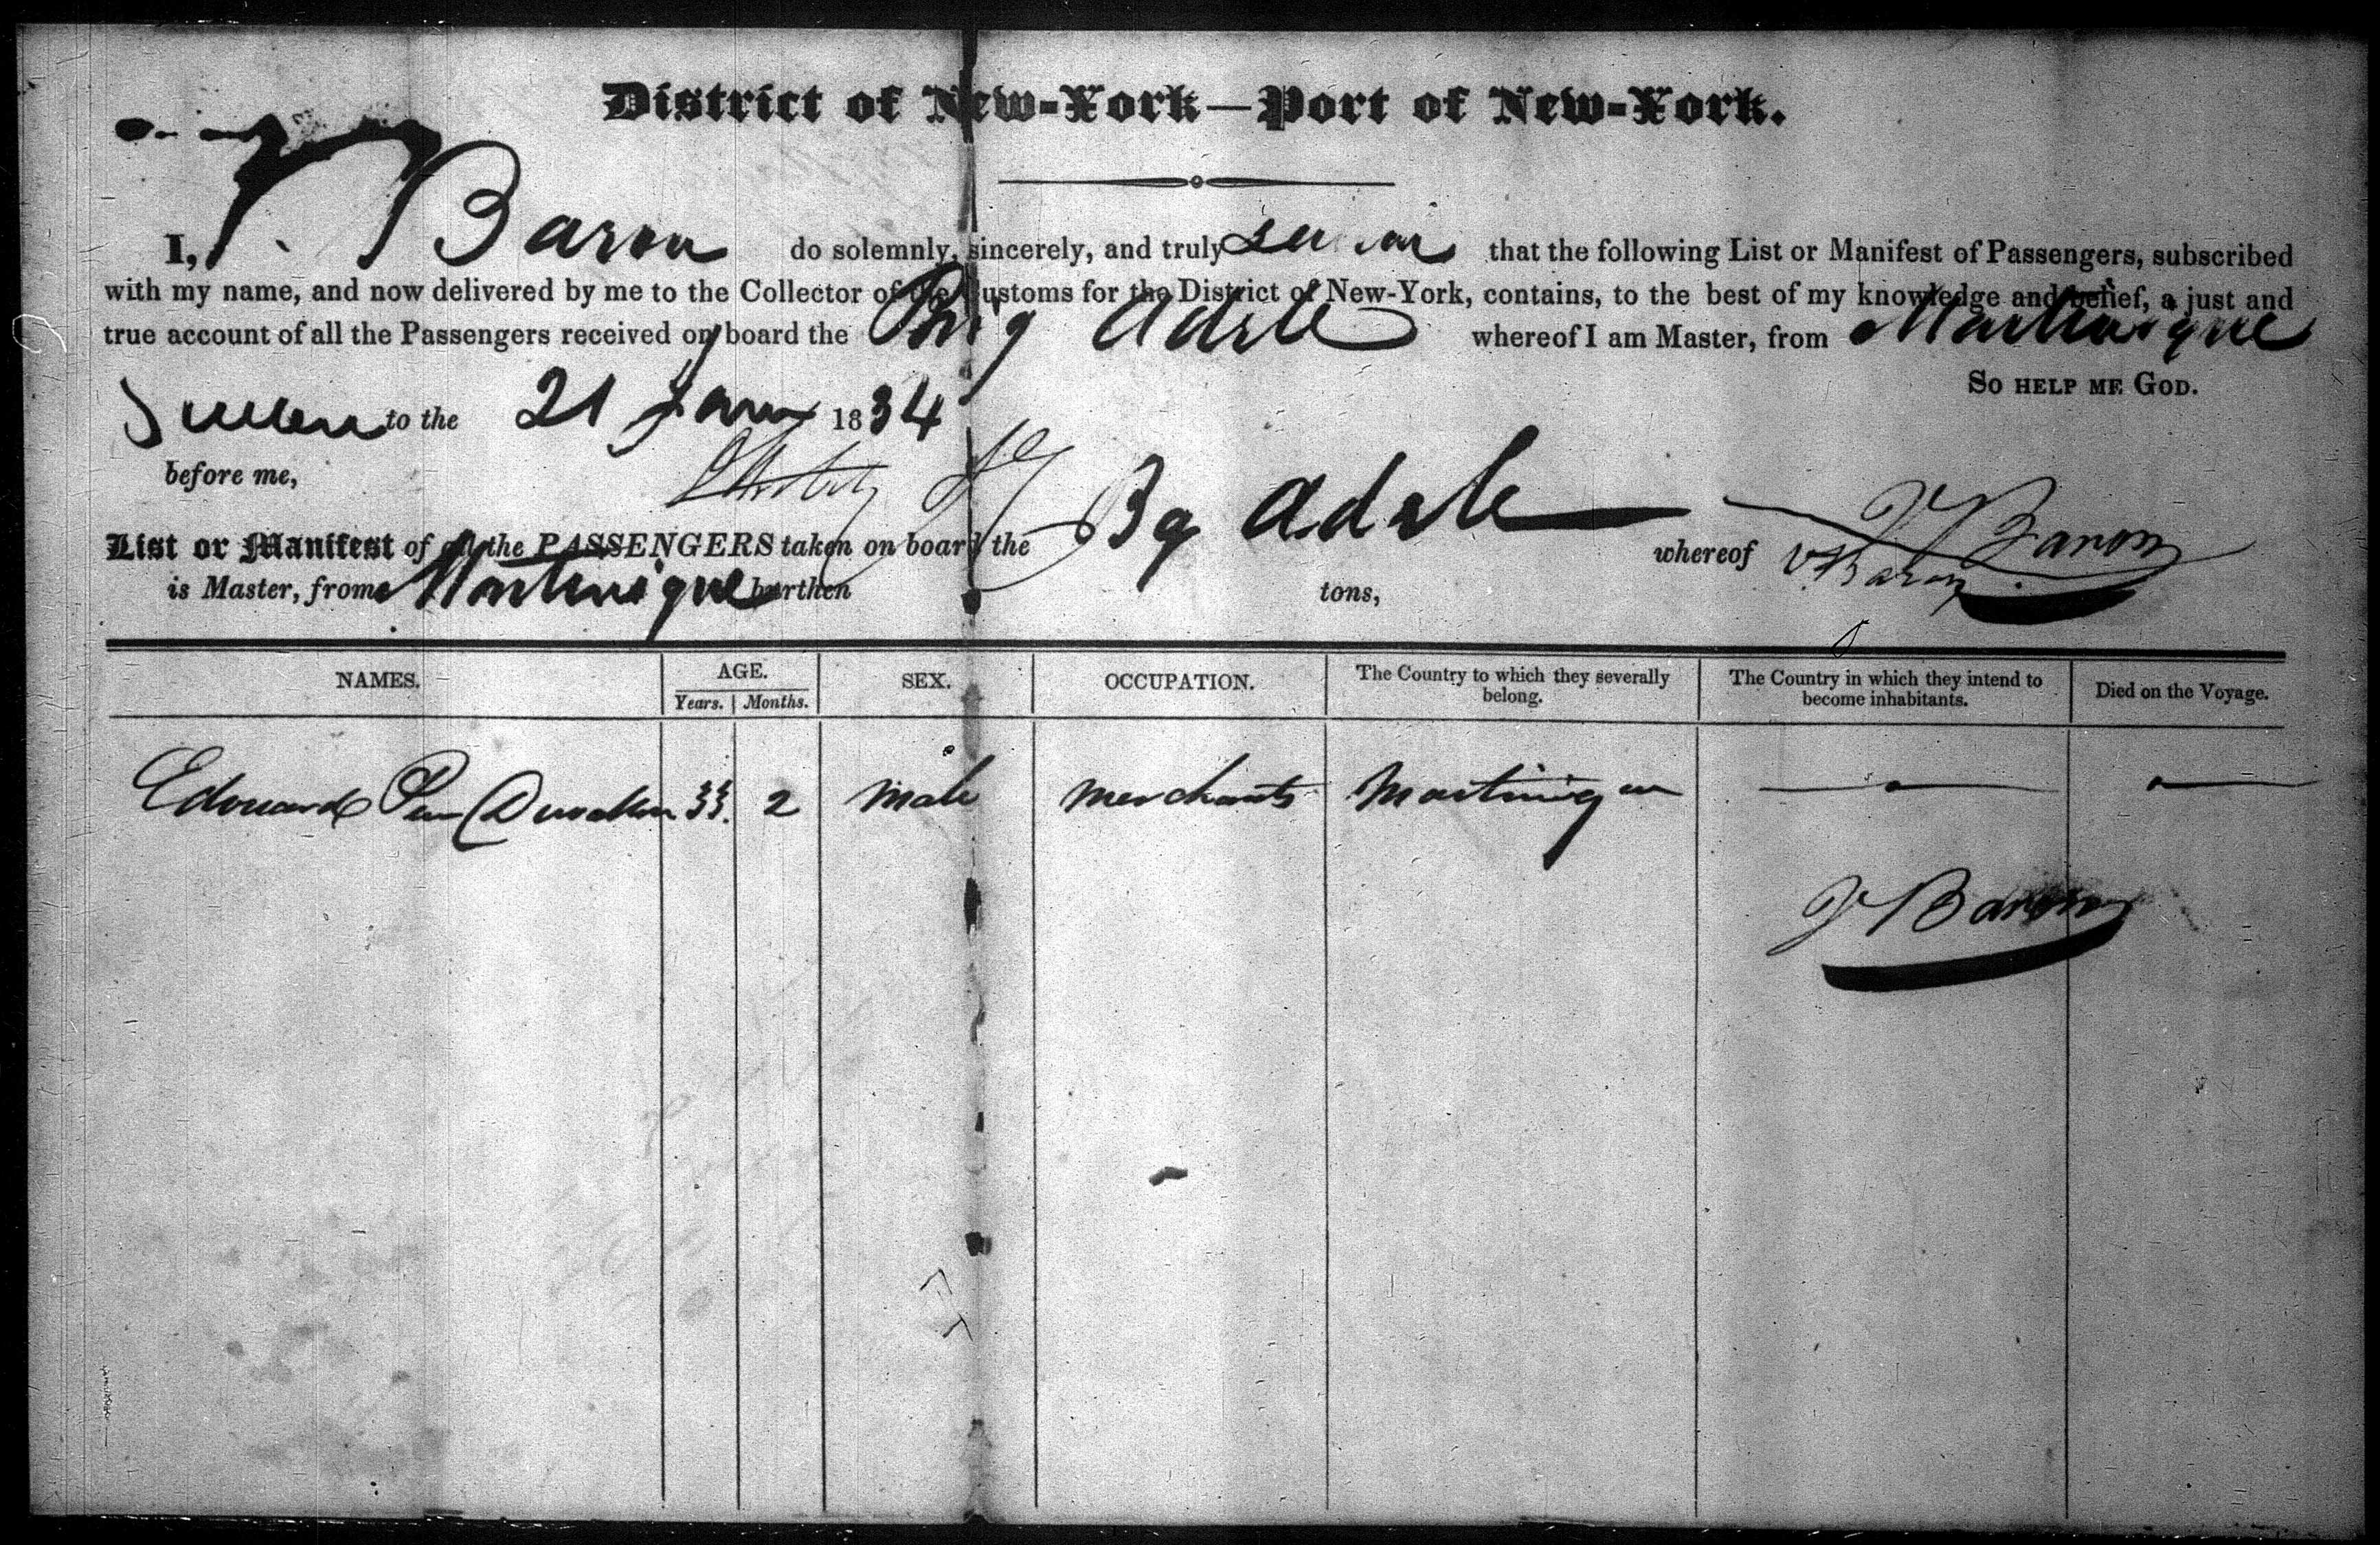 District of New-York—Port of New-York.
I, V. Baron do solemnly, sincerely, and truly swear that the following List or Manifest of Passengers, subscribed
with my name, and now delivered by me to the Collector of the Customs for the District of New-York, contains, to the best of my knowledge and belief, a just and
true account of all the Passengers received on board the Brig Adele whereof I am Master, from Martinique
So help me God.
Sworn to the 21 Jany 1834
before me,
List or Manifest of all the PASSENGERS taken on board the Bg Adele whereof V Baron
V Baron
is Master, from Martinique burthen tons,
NAMES. AGE. SEX. OCCUPATION. The Country to which they severally belong. The Country in which they intend to become inhabitants. Died on the Voyage.
Years. Months.
Edouard 33. 2 Male Merchants Martinique
V Baron